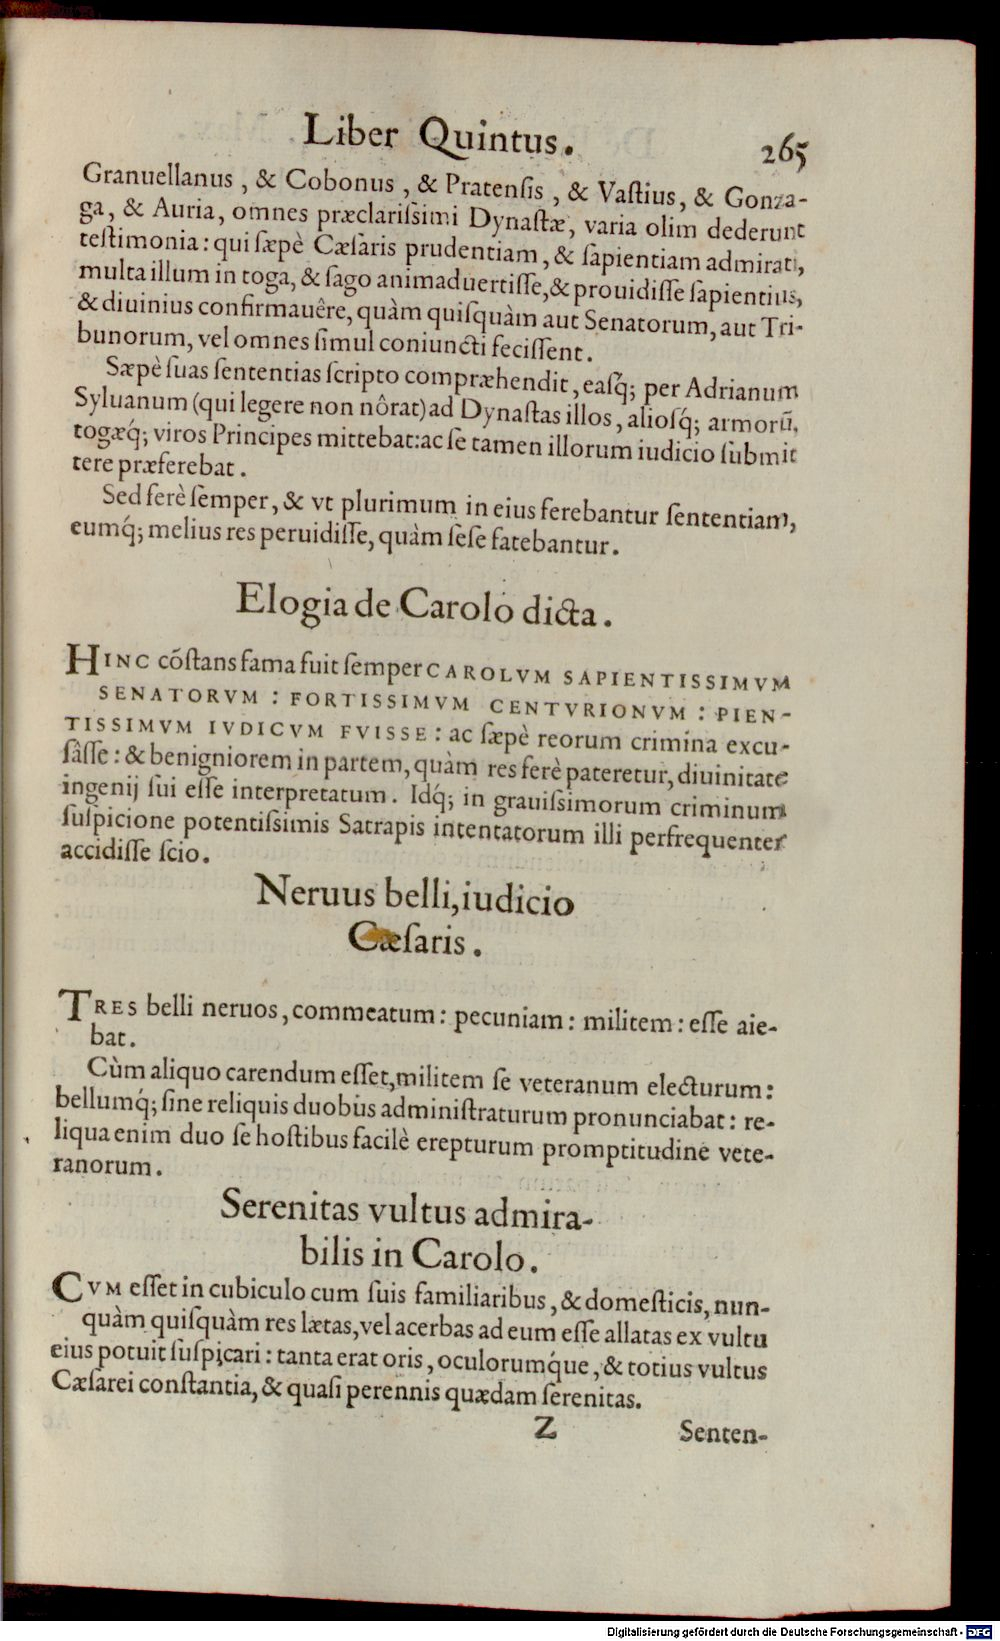 Liber Quintus. 265
Granuellanus, & Cobonus, & Pratensis, & Vaſtius, & Gonza-
ga, & Auria, omnes præclariſsimi Dynaſtæ, varia olim dederunt
teſtimonia: qui ſæpè Cæſaris prudentiam, & ſapientiam admirati,
multa illum in toga, & ſago animaduertiſſe, & prouidiſſe ſapientius,
& diuinius confirmauêre, quàm quiſquàm aut Senatorum, aut Tri-
bunorum, vel omnes ſimul coniuncti feciſſent.
Sæpè ſuas ſententias ſcripto compræhendit, eaſq́; per Adrianum
Syluanum (qui legere non nôrat) ad Dynaſtas illos, alioſq́; armorũ,
togæq́; viros Principes mittebat: ac ſe tamen illorum iudicio ſubmit
tere præferebat.
Sed ferè ſemper, & vt plurimum in eius ferebantur ſententiam,
eumq́; melius res peruidiſſe, quàm ſeſe fatebantur.
Elogia de Carolo dicta.
HINC cõſtans fama fuit ſemper CAROLVM SAPIENTISSIMVM
SENATORVM: FORTISSIMVM CENTVRIONVM: PIEN-
TISSIMVM IVDICVM FVISSE: ac ſæpè reorum crimina excu-
ſâſſe: & benigniorem in partem, quàm res ferè pateretur, diuinitate
ingenij ſui eſſe interpretatum. Idq́; in grauiſsimorum criminum
ſuſpicione potentiſsimis Satrapis intentatorum illi perfrequenter
accidiſſe ſcio.
Neruus belli, iudicio
Cæſaris.
TRES belli neruos, commeatum: pecuniam: militem: eſſe aie-
bat.
Cùm aliquo carendum eſſet, militem ſe veteranum electurum:
bellumq́; ſine reliquis duobus adminiſtraturum pronunciabat: re-
liqua enim duo ſe hoſtibus facilè erepturum promptitudine vete-
ranorum.
Serenitas vultus admira-
bilis in Carolo.
CVM eſſet in cubiculo cum ſuis familiaribus, & domeſticis, nun-
quàm quiſquàm res lætas, vel acerbas ad eum eſſe allatas ex vultu
eius potuit ſuſpicari: tanta erat oris, oculorumq́ue, & totius vultus
Cæſarei conſtantia, & quaſi perennis quædam ſerenitas.
Z Senten-
Digitalisierung gefördert durch die Deutsche Forschungsgemeinschaft - DFG